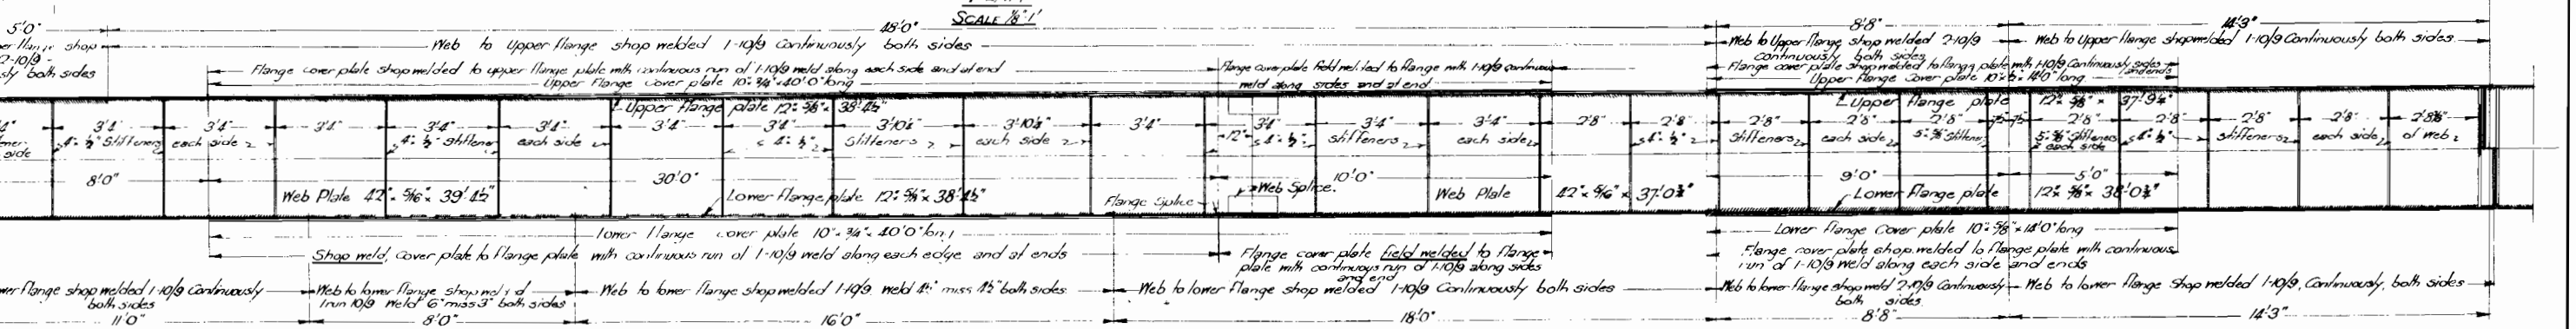 SCALE 1/8"=1'
5'0" 48'0" 8'8" 14'3"
Web to Upper flange shop welded 1-10/9 Continuously both sides
Web to Upper flange shop welded 2-10/9
continuously both sides
Web to Upper flange shop welded 1-10/9 Continuously both sides
flange shop
2-10/9
both sides
Flange cover plate shop welded to upper flange plate with continuous run of 1-10/9 weld along each side and at end
Flange cover plate field welded to flange with 1-10/9 continuous
weld along sides and at end
Flange cover plate shop welded to flange plate with 1-10/9 Continuously sides
and ends
Upper flange cover plate 10" 3/4" × 40'0" long
Upper flange Cover plate 14'0" long
Upper flange plate 12" × 5/8" × 38'4½"
Upper flange plate 12" × 5/8" × 37'9¾"
3'4" 3'4" 3'4" 3'4" 3'4" 3'4" 3'4" 3'10½" 3'10½" 3'4" 3'4" 3'4" 3'4" 2'8" 2'8" 2'8" 2'8" 2'8" 2'8" 2'8" 2'8" 2'8"
side
4" × ½" Stiffeners each side
4" × ½" Stiffener each side
4" × ½" stiffeners each side
12"
4" × ½" stiffeners each side
4" × ½" stiffeners each side
5" × Stiffener
Stiffeners
each side
4" × ½" stiffeners each side of web
8'0" 30'0" 10'0" 9'0" 5'0"
Web Plate 42" × 5/16" × 39'4½"
Lower flange plate 12" × 5/8" × 38'4½"
Flange Splice
Web Splice.
Web Plate 42" × 5/16" × 37'0¾"
Lower flange plate 12" × 5/8" × 38'0¾"
lower flange cover plate 10" × 3/4" × 40'0" long
Lower flange Cover plate 10" × 5/8" × 14'0" long
Shop weld, cover plate to flange plate with continuous run of 1-10/9 weld along each edge and at ends
Flange cover plate field welded to flange
plate with continuous run of 1-10/9 along sides
and end
Flange cover plate shop welded to flange plate with continuous
run of 1-10/9 weld along each side and ends
flange shop welded 1-10/9 Continuously
both sides
Web to lower flange shop welded
1 run 10/9 weld 6" miss 3" both sides
Web to lower flange shop welded 1-10/9 weld 4½" miss 4½" both sides
Web to lower flange shop welded 1-10/9 Continuously both sides
Web to lower flange shop weld 2-10/9 Continuously
both sides
Web to lower flange Shop welded 1-10/9, Continuously, both sides
11'0" 8'0" 16'0" 18'0" 8'8" 14'3"